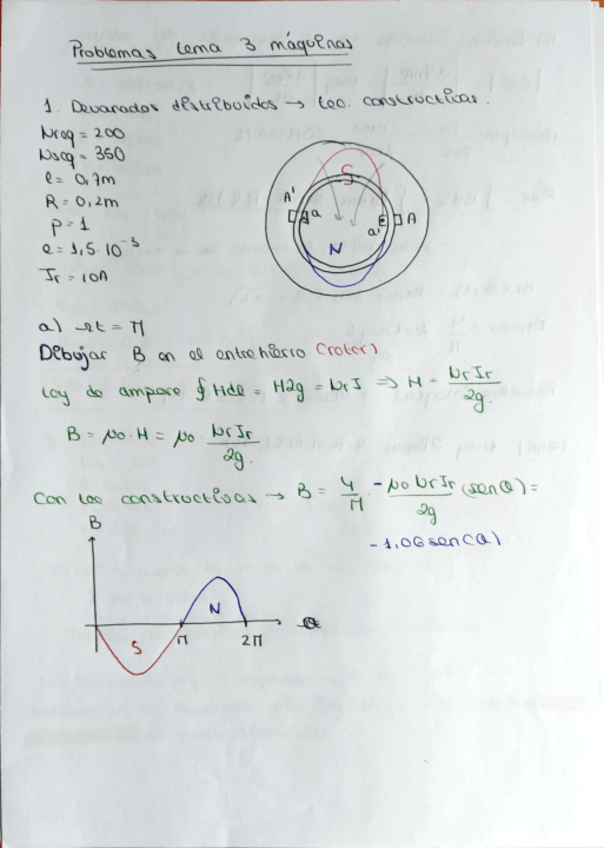 Problemas tema 3 máquinas
1. Devanados distribuidos → tec. constructivas.
Nreq = 200
Nseq = 350
l = 0,7m
R = 0,2m
p = 1
e = 1,5·10⁻³
Ir = 10A
S
A'
a
a'
A
N
a) Ωt = π
Dibujar B en el entrehierro (rotor)
Ley de ampere ∮ Hdl = H2g = NrI ⇒ H = NrIr/2g.
B = μo·H = μo · NrIr/2g.
Con tec constructivas → B = 4/π · -μo NrIr/2g (senθ) =
-1,06 sen(θ)
B
N
S
π
2π
θ